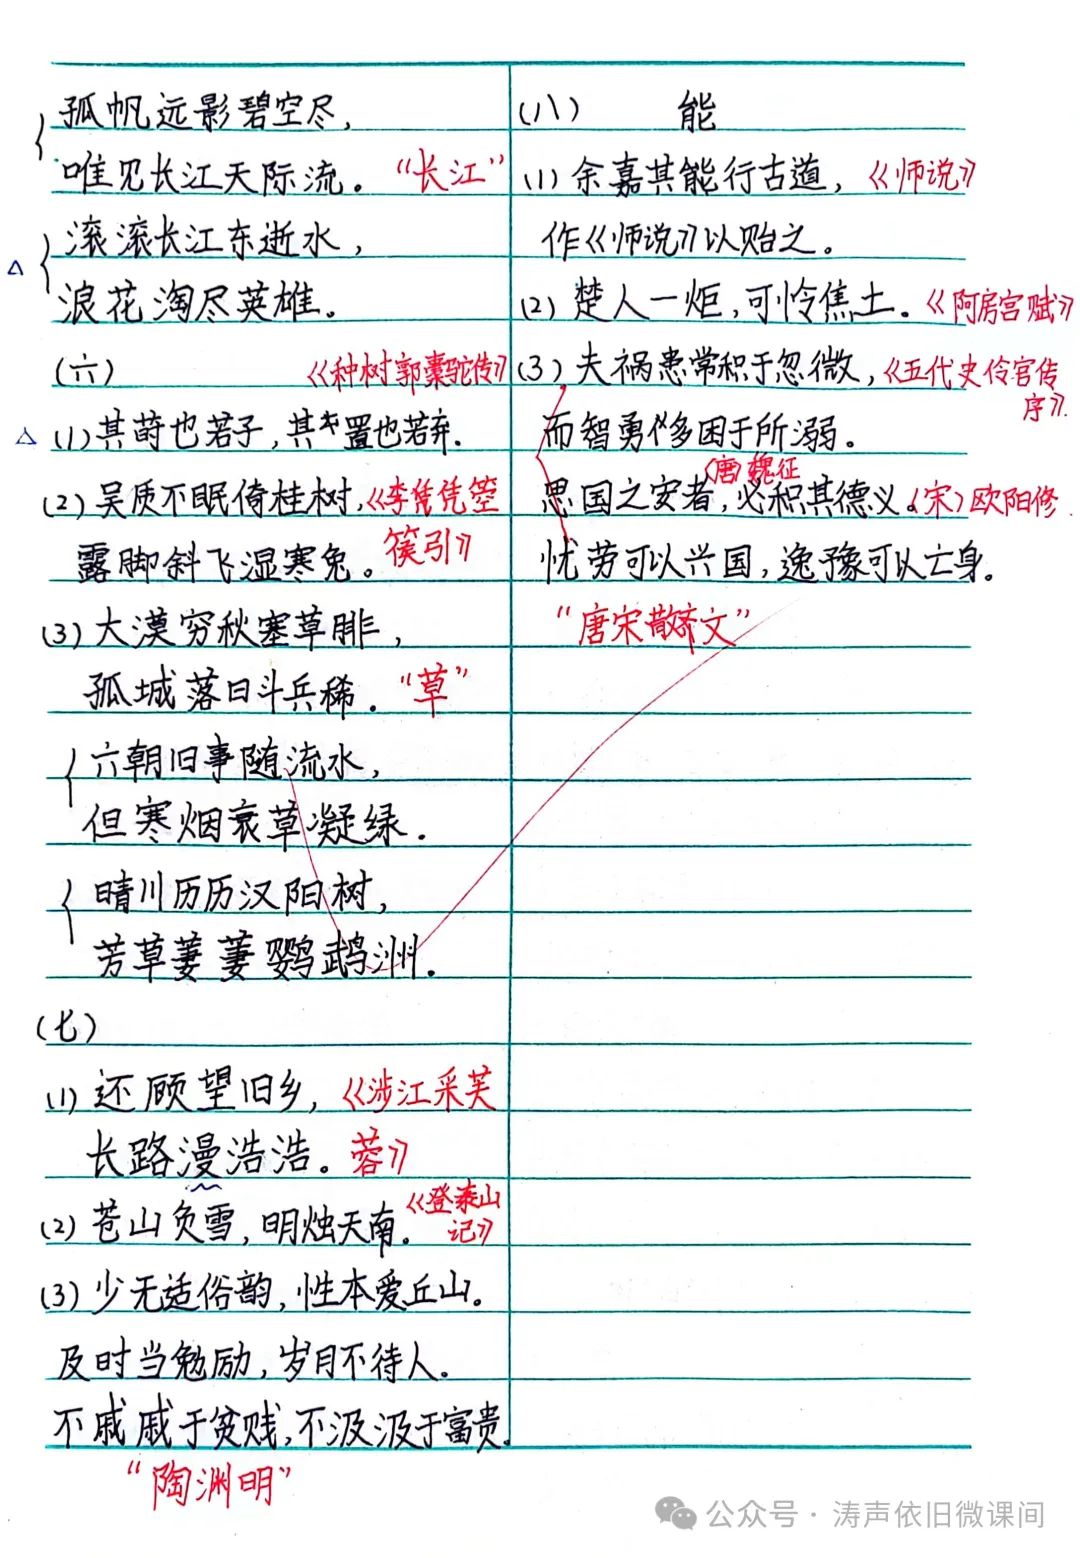 孤帆远影碧空尽,
唯见长江天际流。 “长江”
滚滚长江东逝水,
△ 浪花淘尽英雄。
(六) 《种树郭橐驼传》
△ (1)其莳也若子,其置也若弃.
(2)吴质不眠倚桂树,《李凭凭箜
露脚斜飞湿寒兔。 篌引》
(3)大漠穷秋塞草腓,
孤城落日斗兵稀. “草”
六朝旧事随流水,
但寒烟衰草凝绿.
晴川历历汉阳树,
芳草萋萋鹦鹉洲.
(七)
(1)还顾望旧乡, 《涉江采芙
长路漫浩浩。 蓉》
(2)苍山负雪,明烛天南. 《登泰山
记》
(3)少无适俗韵,性本爱丘山.
及时当勉励,岁月不待人.
不戚戚于贫贱,不汲汲于富贵.
“陶渊明”
(八) 能
(1)余嘉其能行古道, 《师说》
作《师说》以贻之。
(2)楚人一炬,可怜焦土. 《阿房宫赋》
(3)夫祸患常积于忽微, 《五代史伶官传
序》.
而智勇多困于所溺。
(唐)魏征
思国之安者,必积其德义.(宋)欧阳修.
忧劳可以兴国,逸豫可以亡身.
“唐宋散文”
公众号·涛声依旧微课间